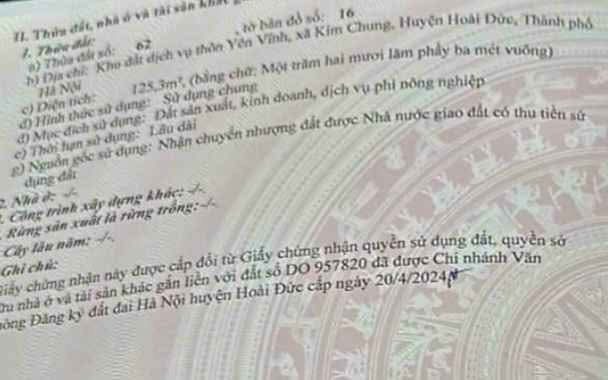 II. Thửa đất, nhà ở và tài sản khác
1. Thửa đất:
a) Thửa đất số: 62 , tờ bản đồ số: 16
b) Địa chỉ: Khu đất dịch vụ thôn Yên Vĩnh, xã Kim Chung, Huyện Hoài Đức, Thành phố
Hà Nội
c) Diện tích: 125,3m², (bằng chữ: Một trăm hai mươi lăm phẩy ba mét vuông)
d) Hình thức sử dụng: Sử dụng chung
đ) Mục đích sử dụng: Đất sản xuất, kinh doanh, dịch vụ phi nông nghiệp
e) Thời hạn sử dụng: Lâu dài
g) Nguồn gốc sử dụng: Nhận chuyển nhượng đất được Nhà nước giao đất có thu tiền sử
dụng đất
2. Nhà ở: -/-.
. Công trình xây dựng khác: -/-.
. Rừng sản xuất là rừng trồng: -/-.
Cây lâu năm: -/-.
Ghi chú:
Giấy chứng nhận này được cấp đổi từ Giấy chứng nhận quyền sử dụng đất, quyền sở
ữu nhà ở và tài sản khác gắn liền với đất số DO 957820 đã được Chi nhánh Văn
hòng Đăng ký đất đai Hà Nội huyện Hoài Đức cấp ngày 20/4/2024